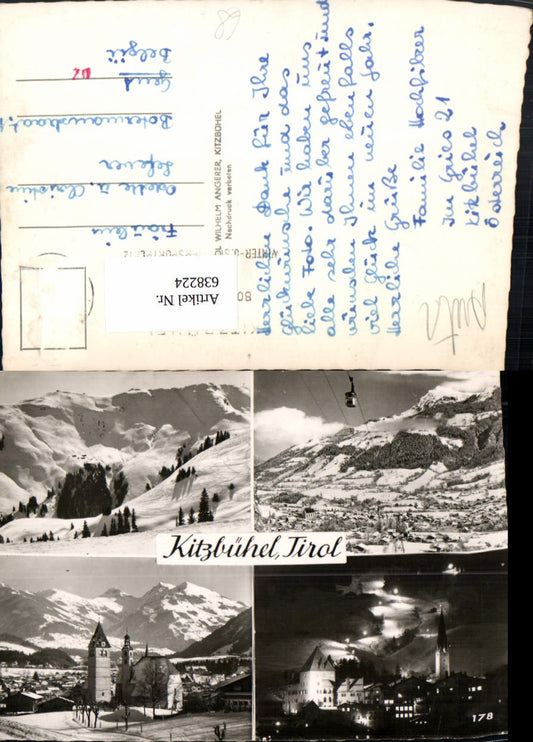 Herzlichen Dank für Ihre
Glückwünsche und das
liebe Foto. Wir haben uns
alle sehr darüber gefreut und
wünschen Ihnen ebenfalls
viel Glück im neuen Jahr.
Herzliche Grüße
Familie Hochfilzer
Im Gries 21
Kitzbühel
Österreich
WILHELM ANGERER, KITZBÜHEL
Nachdruck verboten
Fräulein
Lefever
Gent
België
Artikel Nr.
638224
Kitzbühel, Tirol
178